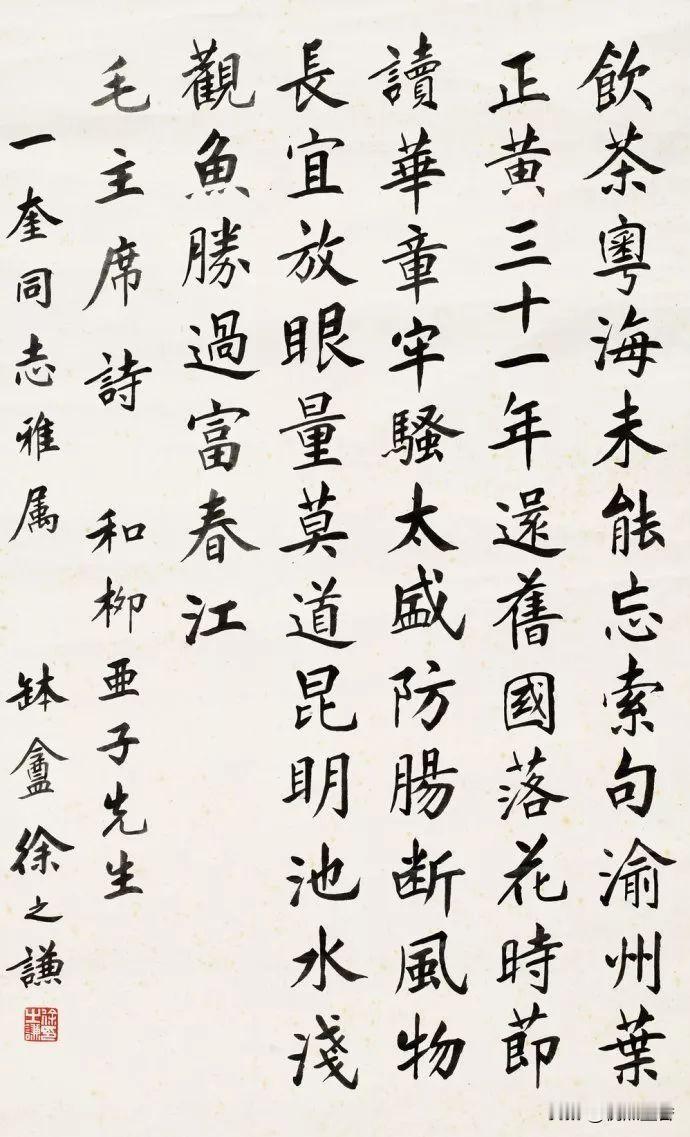 飲茶粵海未能忘索句渝州葉
正黃三十一年還舊國落花時節
讀華章牢騷太盛防腸斷風物
長宜放眼量莫道昆明池水淺
觀魚勝過富春江
毛主席詩 和柳亞子先生
一奎同志雅属 缽盦徐之謙
徐之謙